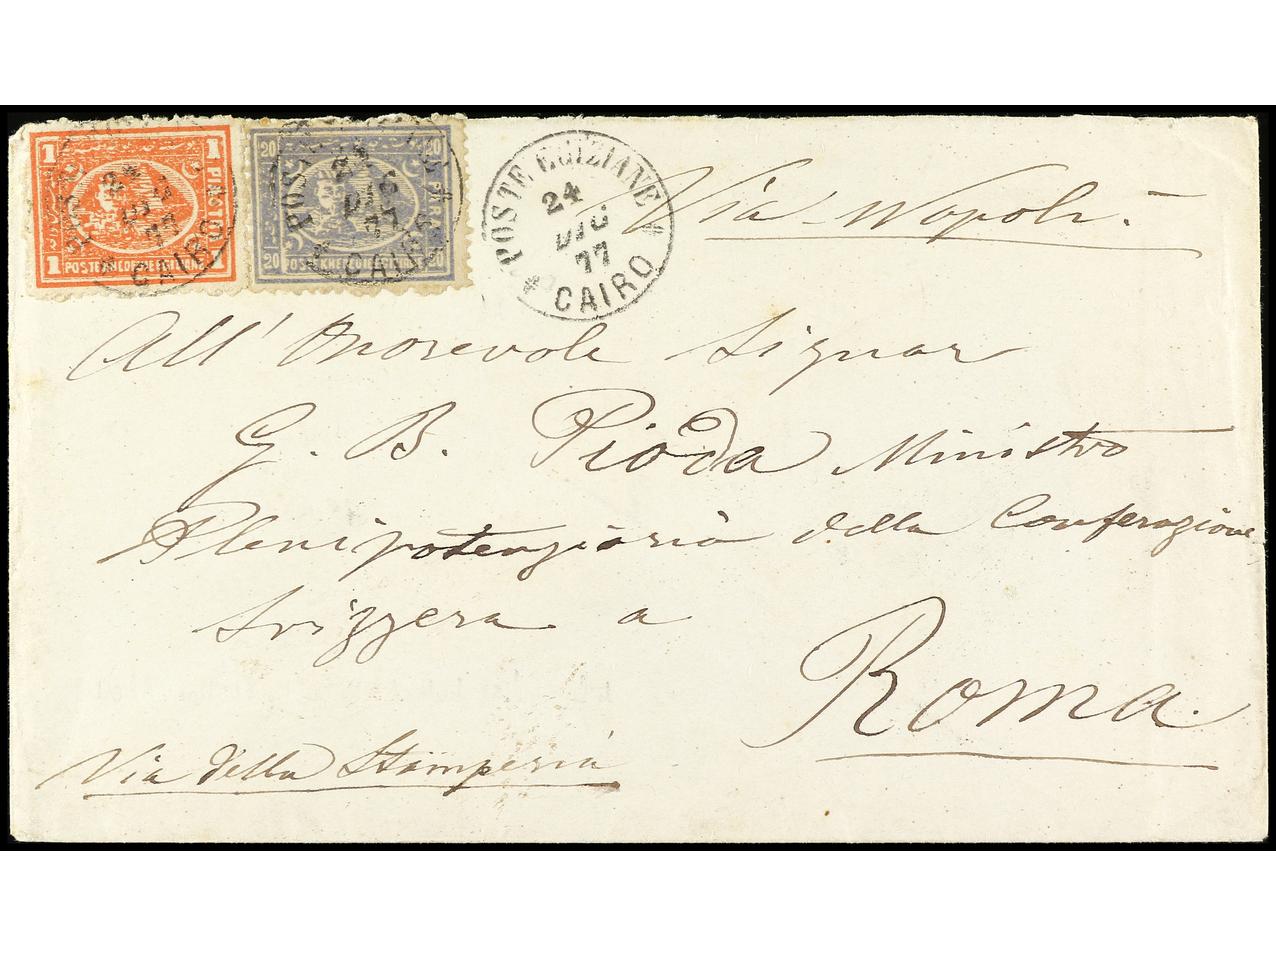 1 1
PIASTRA
1 1
POSTE KHEDEUIE EGIZIANE
20 20
PARA
20 20
POSTE KHEDEUIE EGIZIANE
CAIRO
24
77
CAIRO
POSTE EGIZIANE
24
DIC
77
CAIRO
Via Napoli.
All' Onorevole Signor
G. B. Pioda Ministro
Plenipotenziario della Conferazione
Svizzera a
Roma.
Via della Stamperia